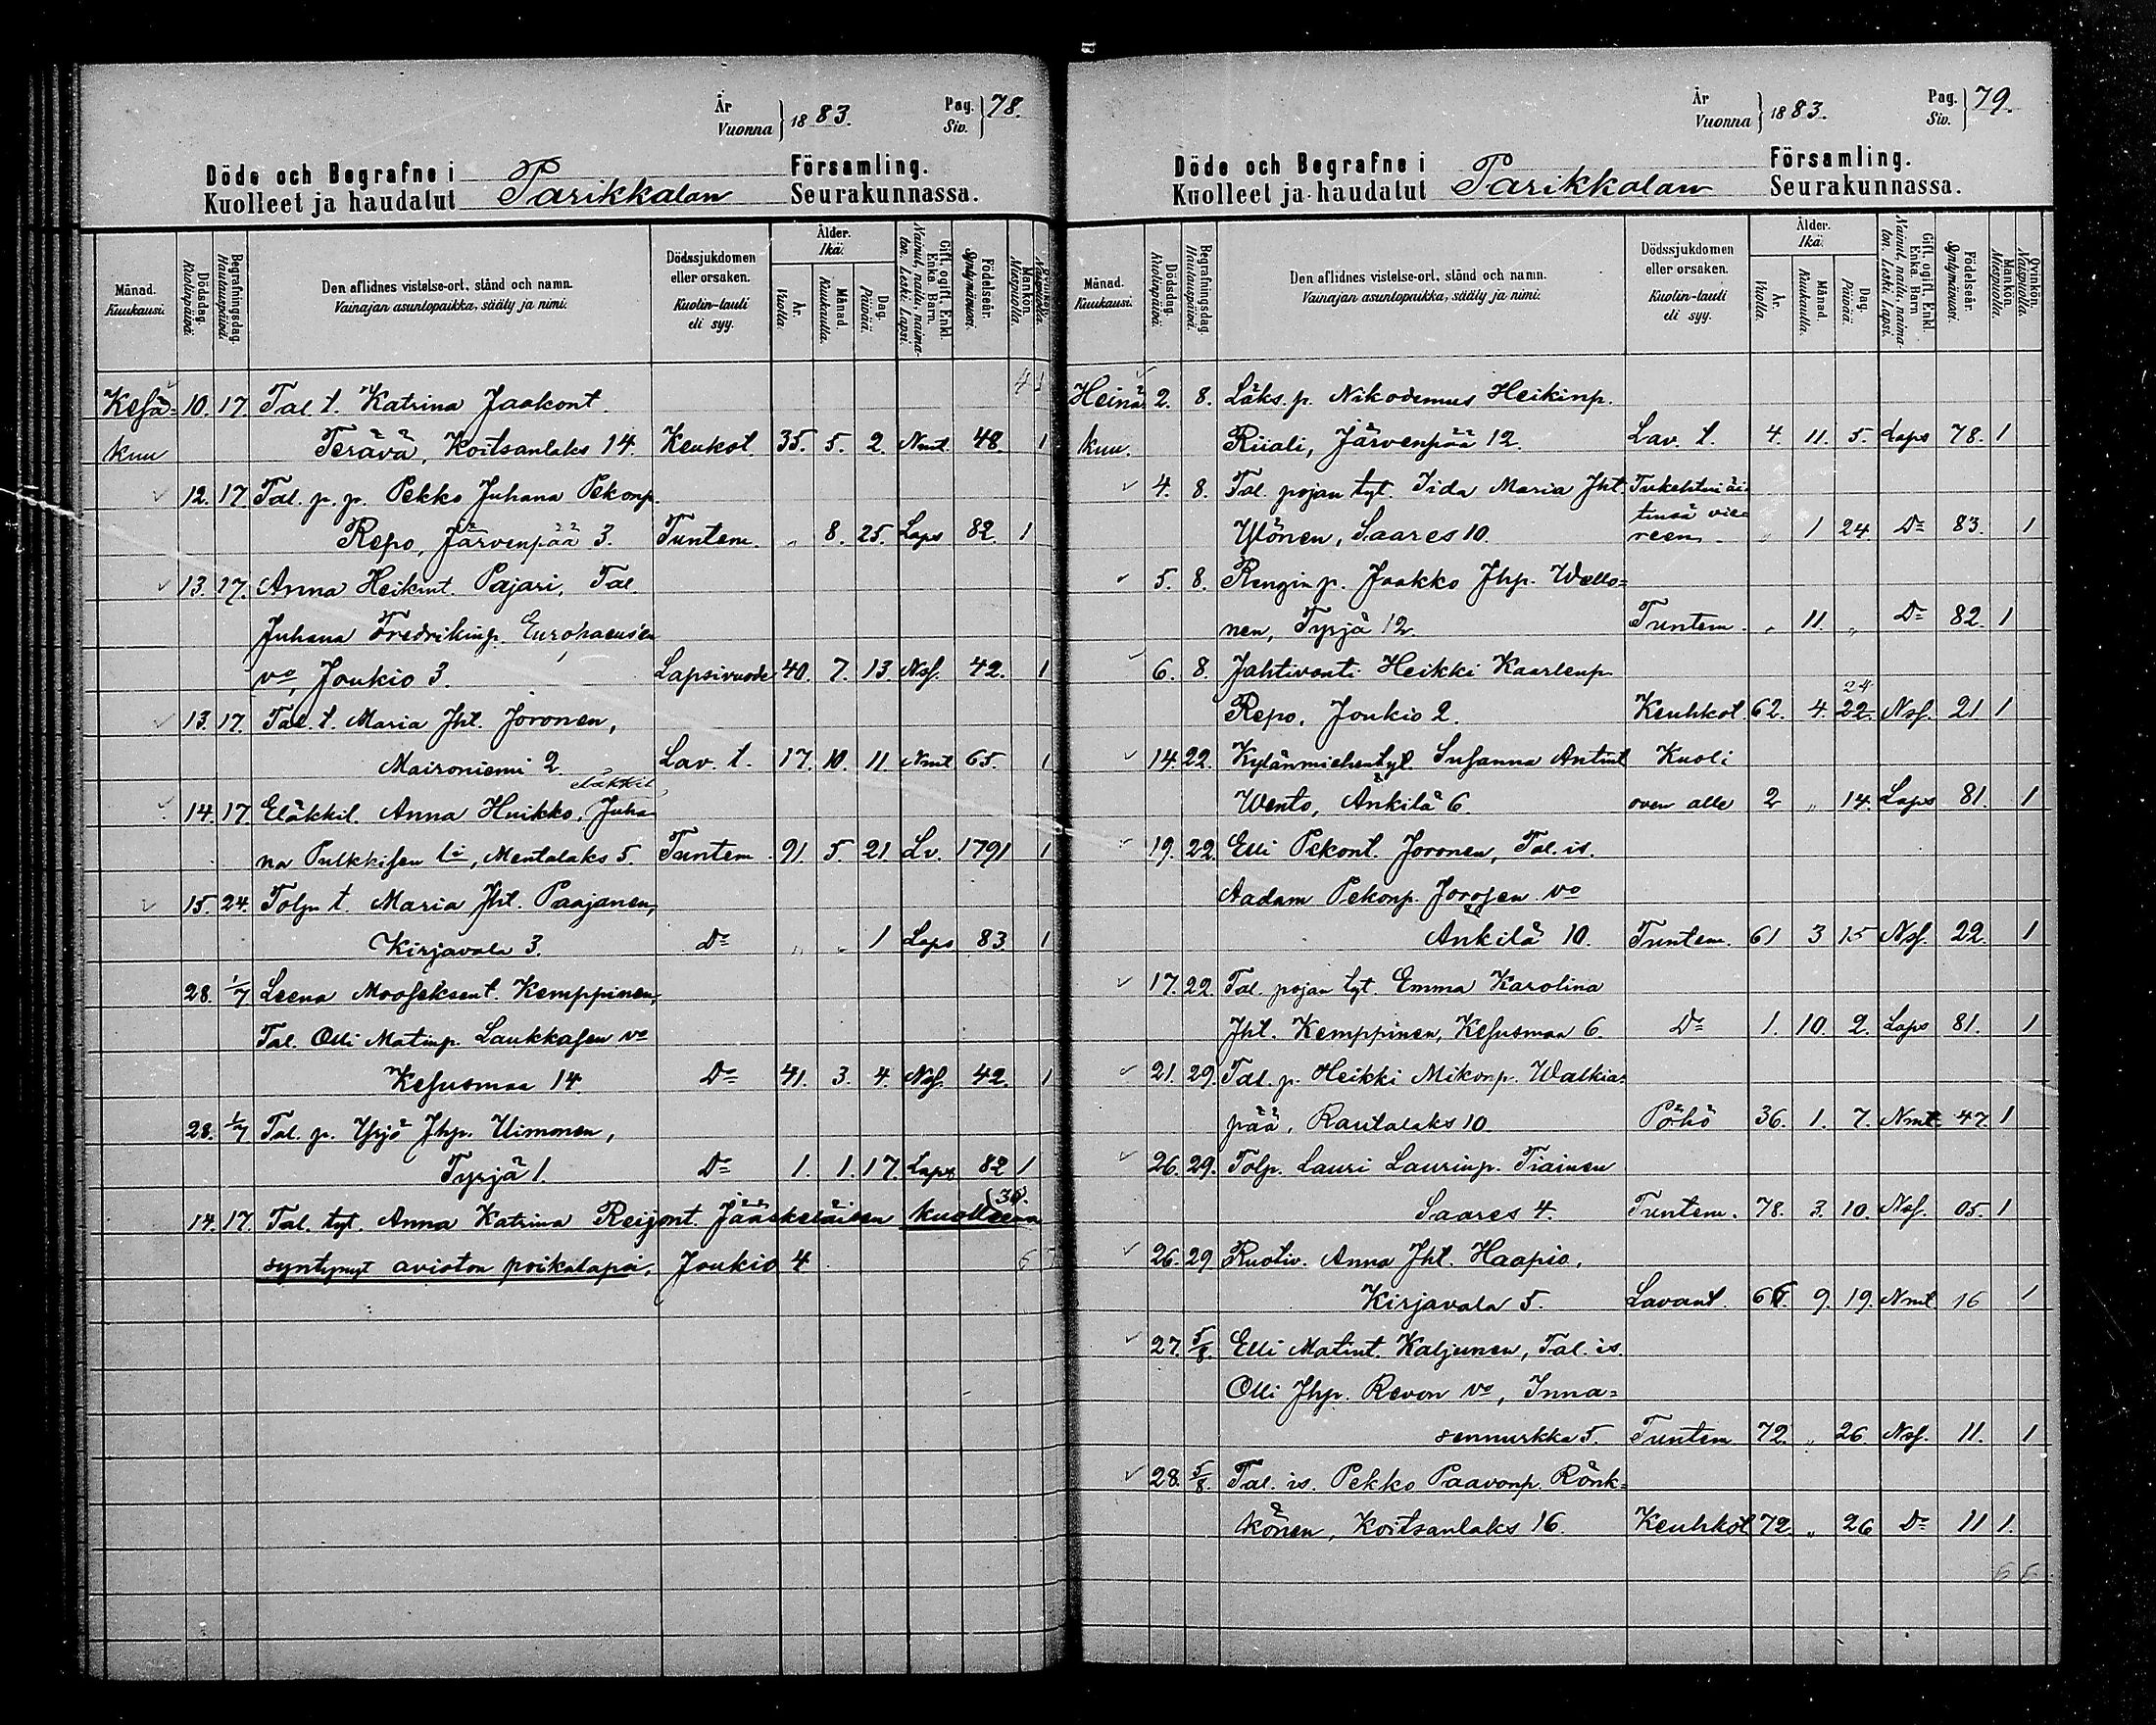 År
Vuonna } 1883. Pag. Siv. } 78.
Döde och Begrafne i Församling.
Kuolleet ja haudatut Parikkalan Seurakunnassa.
Månad. Kuukausi. Dödsdag. Kuolinpäivä. Begrafningsdag. Hautauspäivä. Den aflidnes vistelse-ort, stånd och namn. Vainajan asuntopaikka, sääty ja nimi. Dödssjukdomen eller orsaken. Kuolin-tauti eli syy. Ålder. Ikä. År. Vuotta. Månad. Kuukautta. Dag. Päivää. Gift, ogift, Enkl. Enka. Barn. Nainut, naitu, naimaton, leski, Lapsi. Födelseår. Syntymävuosi. Mankön. Miespuolia. Qvinkön. Naispuolia.
4 1
Kesä= 10. 17 Tal. t. Katrina Jaakont.
kuu Terävä, Koitsanlaks 14. Keukot 35. 5. 2. Nmt. 48. 1
12. 17. Tal. p. p. Pekko Juhana Pekonp.
Repo, Järvenpää 3. Tuntem. " 8. 25. Laps 82. 1
13. 17. Anna Heikint. Pajari, Tal.
Juhana Fredrikinp. Europaeus'en
vo, Joukio 3. Lapsivuode 40. 7. 13 Nsf. 42. 1
13. 17. Tal. t. Maria Jht. Joronen,
Maironiemi 2. Lav. t. 17. 10. 11. Nmt 65. 1
eläkkil
14. 17. Eläkkil. Anna Huikko, Juha
na Pulkkisen li, Mentalaks 5. Tuntem. 91. 5. 21 Lv. 1791 1
15. 24. Tolp. t. Maria Jht. Paajanen,
Kirjavala 3. Do " " 1 Laps 83. 1
28. 1/7 Leena Mooseksent. Kemppinen,
Tal. Olli Matinp. Laukkasen vo
Kesusmaa 14. Do 41. 3. 4. Nsf. 42. 1
28. 1/7 Tal. p. Yrjö Jhp. Uimonen,
Tyrjä 1. Do 1. 1. 17. Laps 82 1
(36).
14. 17. Tal. tyt. Anna Katrina Reijont. Jääskeläisen kuolleena
syntynyt avioton poikalapsi, Joukio 4
År
Vuonna } 1883. Pag. Siv. } 79.
Döde och Begrafne i Församling.
Kuolleet ja haudatut Parikkalan Seurakunnassa.
Månad. Kuukausi. Dödsdag. Kuolinpäivä. Begrafningsdag. Hautauspäivä. Den aflidnes vistelse-ort, stånd och namn. Vainajan asuntopaikka, sääty ja nimi. Dödssjukdomen eller orsaken. Kuolin-tauti eli syy. Ålder. Ikä. År. Vuotta. Månad. Kuukautta. Dag. Päivää. Gift, ogift, Enkl. Enka. Barn. Nainut, naitu, naimaton, leski, Lapsi. Födelseår. Syntymävuosi. Mankön. Miespuolia. Qvinkön. Naispuolia.
Heinä 2. 8. Läks. p. Nikodemus Heikinp.
kuu. Riiali, Järvenpää 12. Lav. t. 4. 11. 5. Laps 78. 1
4. 8. Tal. pojan tyt. Iida Maria Jht. Tukehtui äi=
tinsä vie=
Ylönen, Saares 10. reen " 1 24 Do 83. 1
5. 8. Rengin p. Jaakko Jhp. Wello=
nen, Tyrjä 12. Tuntem. " 11. " Do 82. 1
6. 8. Jahtivouti Heikki Kaarlenp.
24
Repo, Joukio 2. Keuhkot 62. 4. 22. Nsf. 21 1
14. 22. Kylänmiehentyt. Susanna Antint Kuoli
Wento, Änkilä 6. oven alle 2 " 14. Laps 81. 1
19. 22. Elli Pekont. Joronen, Tal. is.
Aadam Pekonp. Jorosen vo
Ankilä 10. Tuntem. 61 3 15 Nsf. 22. 1
17. 22. Tal. pojan tyt. Emma Karolina
Jht. Kemppinen, Kesusmaa 6. Do 1. 10. 2. Laps 81. 1
21. 29. Tal. p. Heikki Mikonp. Walkia=
pää, Rautalaks 10. Pöhö 36. 1. 7. Nmt. 47. 1
26. 29. Tolp. Lauri Laurinp. Tiainen
Saares 4. Tuntem. 78. 3. 10. Nsf. 05. 1
26. 29 Ruotiv. Anna Jht. Haapio,
Kirjavala 5. Lavant. 66. 9. 19. Nmt 16 1
27. 5/8. Elli Matint. Kaljunen, Tal. is.
Olli Jhp. Revon vo, Inna=
sennurkka 5. Tuntem 72. " 26. Nsf. 11. 1
28. 5/8. Tal. is. Pekko Paavonp. Rönk=
könen, Koitsanlaks 16. Keuhkot 72. " 26 Do 11 1.
6 6